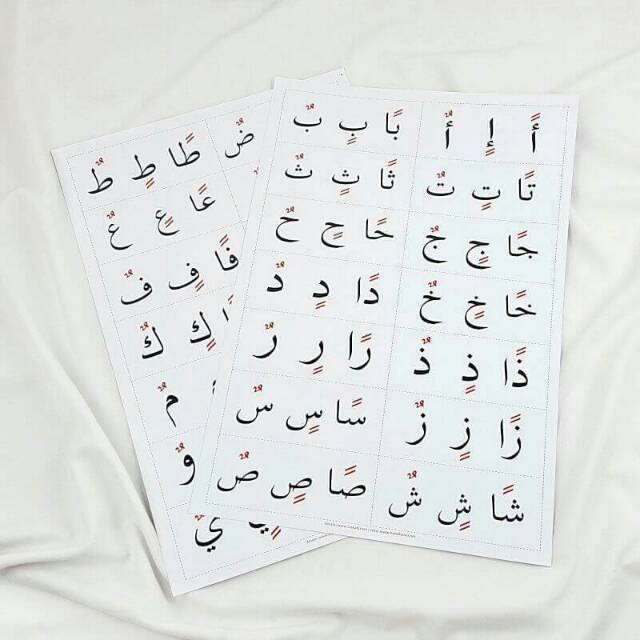 أً إٍ أٌ بًا بٍ بٌ
تًا تٍ تٌ ثًا ثٍ ثٌ
جًا جٍ جٌ حًا حٍ حٌ
خًا خٍ خٌ دًا دٍ دٌ
ذًا ذٍ ذٌ رًا رٍ رٌ
زًا زٍ زٌ سًا سٍ سٌ
شًا شٍ شٌ صًا صٍ صٌ
ضٌ طًا طٍ طٌ
عًا عٍ عٌ
فًا فٍ فٌ
كٍ كٌ
مٌ
وٌ
يٍ يٌ